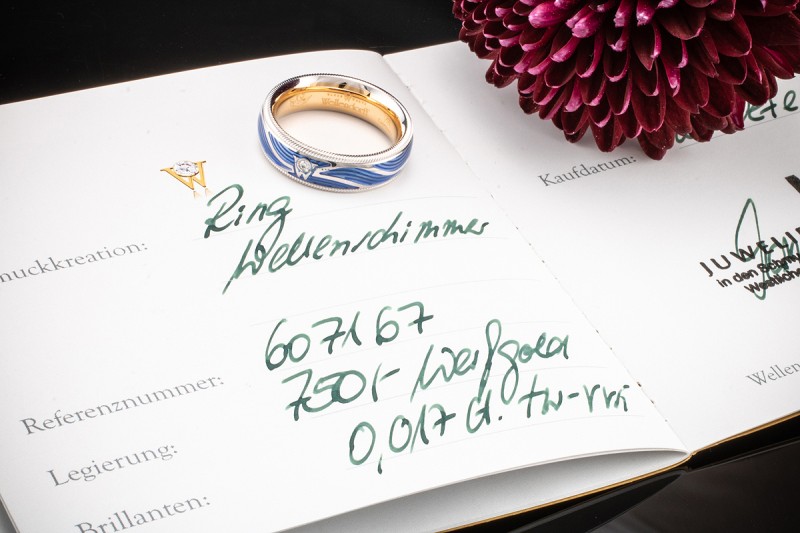 Ring
muckkreation:
Wellenschimmer
Referenznummer: 607167
Legierung: 750/- Weißgold
Brillanten: 0,017 ct. tw-vvsi
Kaufdatum:
JUWELI
in den Schm
Westliche
Wellen